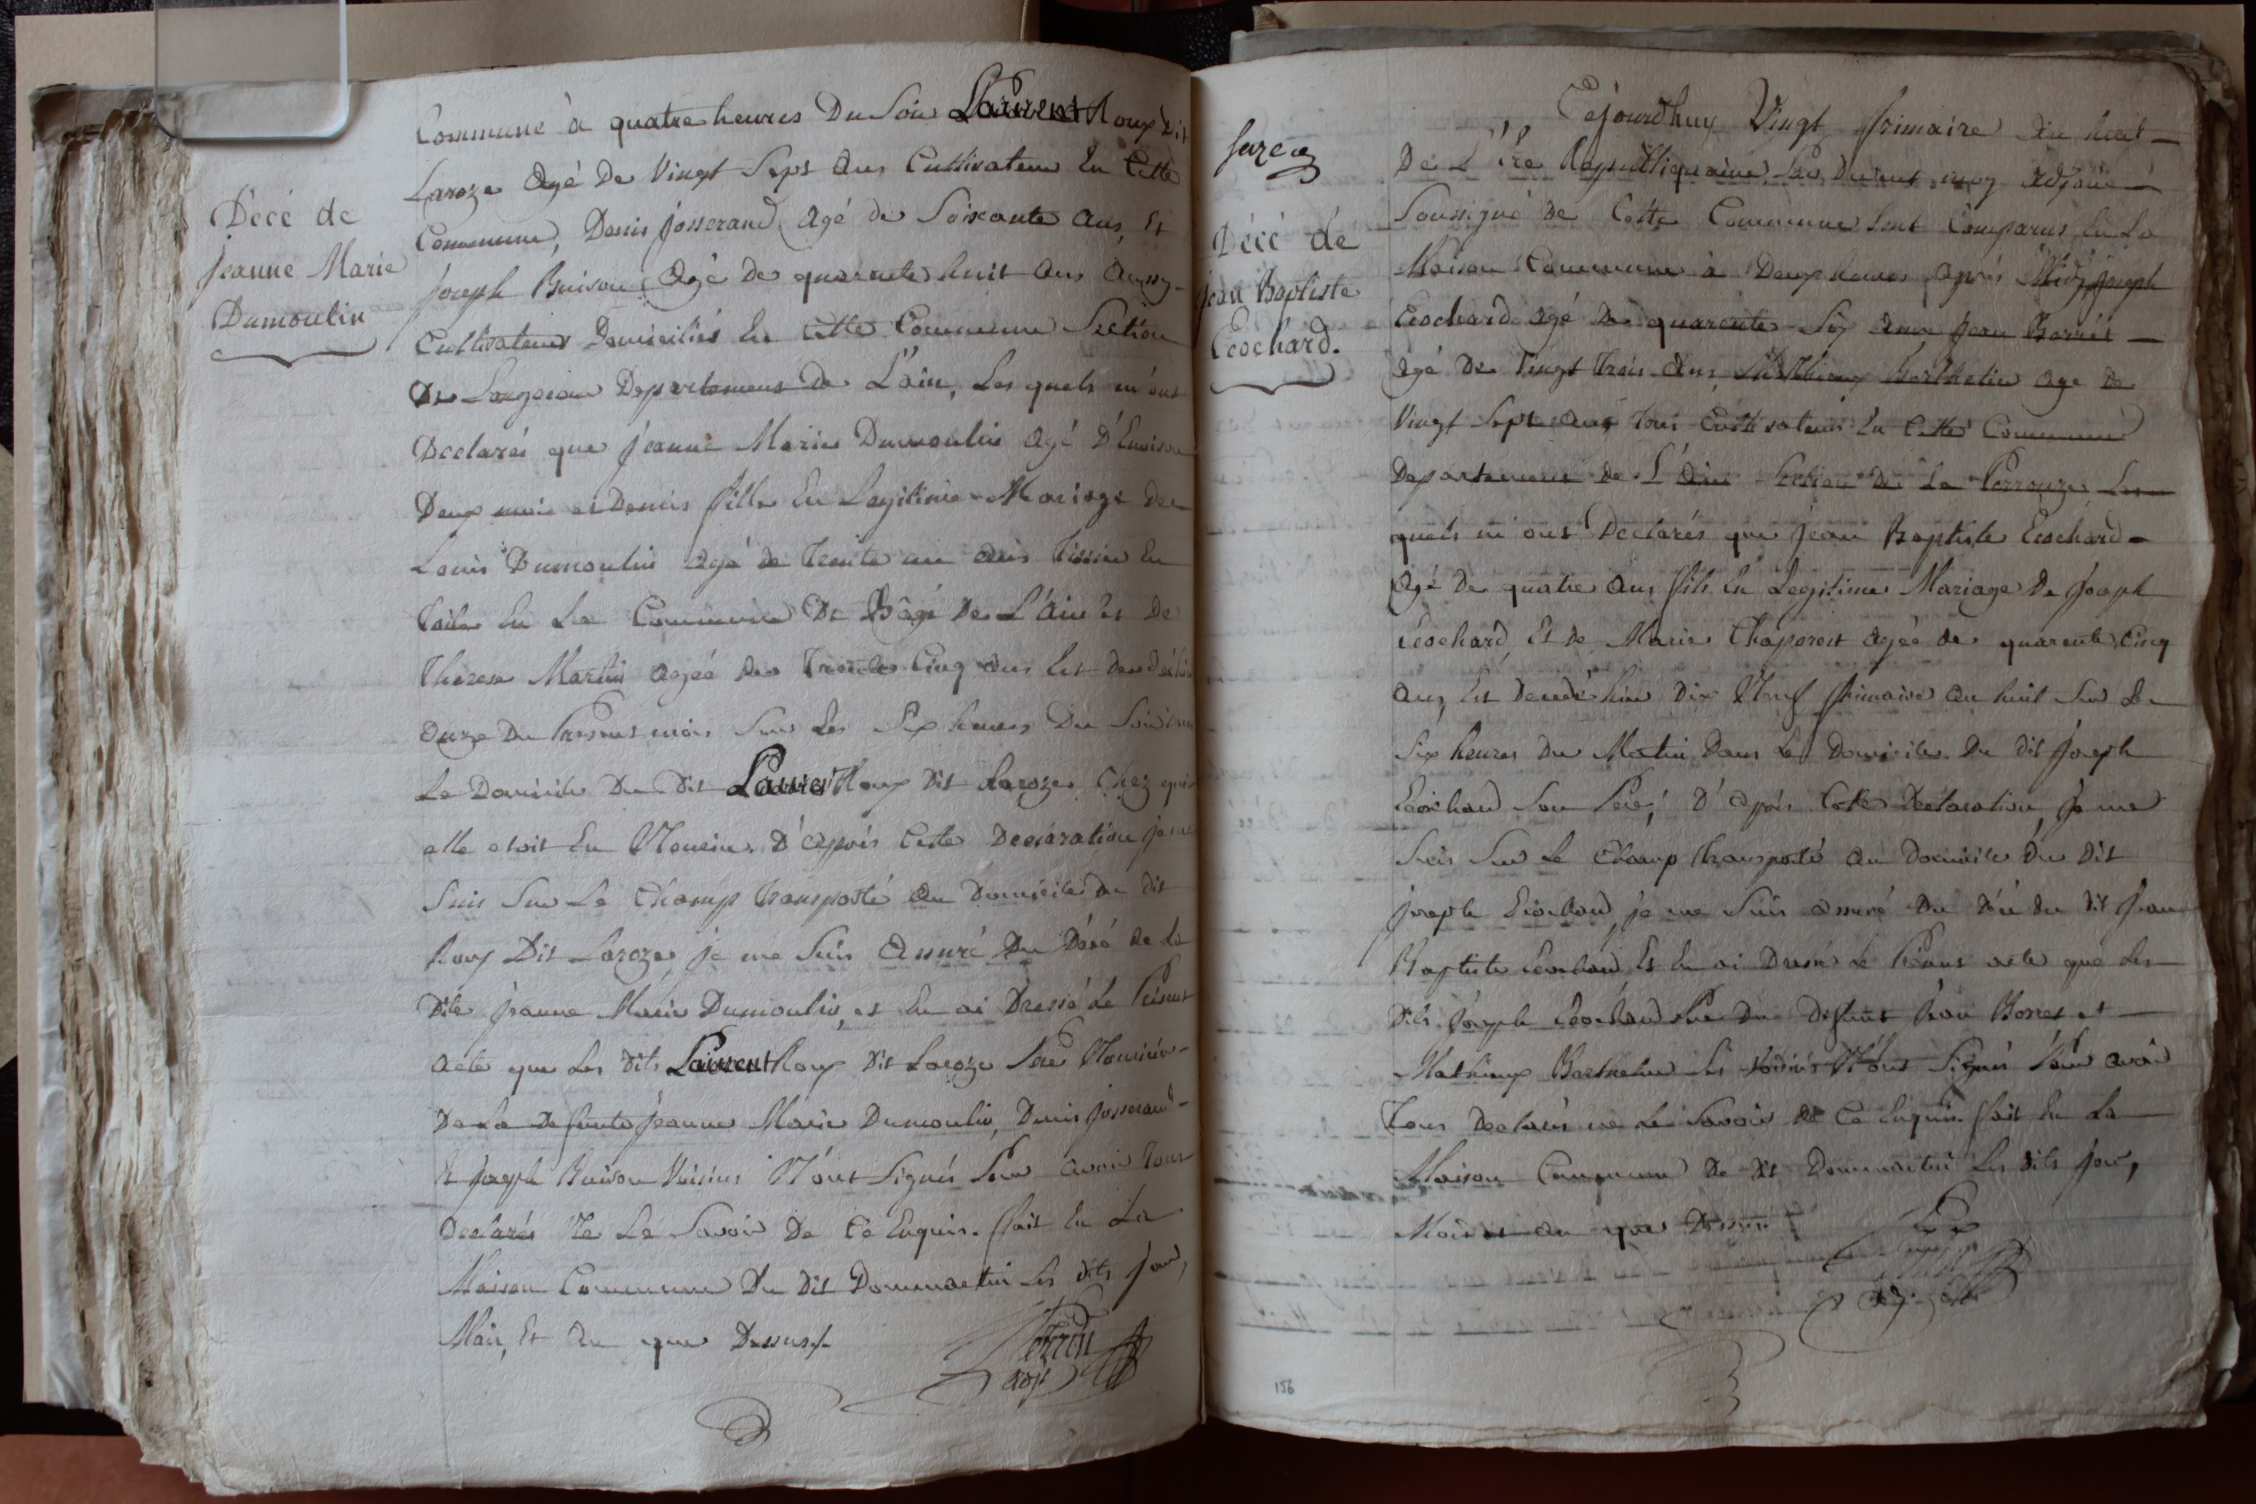 Décé de
Jeanne Marie
Dumoulin
Commune à quatre heures Du Soir Laurent Roux dit
Laroze Agé De Vingt Sept Ans Cultivateur En Cette
Commune, Denis Josserand Agé de Soixante Ans, Et
Joseph Buison Agé De quarente huit Ans Aussy
Cultivateurs Domiciliés En Cette Commune Section
De Departement De L'ain, Les quels m'ont
Declarés que Jeanne Marie Dumoulin Agé D'Environ
Deux mois et Demis fille En Legitime Mariage de
Louis Dumoulin Agé de Trente un Ans Tissier En
Toile En La Commune De Bâgé De L'Ain Et De
Therese Martin Agéé De Trente Cinq Ans Est decedé hier
Onze Du Present mois Sur Les Six heures Du Soir
Le Domicile Du Dit Laurent Roux Dit Laroze Chez qui
elle etoit En Nourice. D'Après Cette Declaration je me
Suis Sur Le Champ Transporté Au Domicile du dit
Roux Dit Laroze, je me Suis Assuré Du Décé de La
Dite Jeanne Marie Dumoulin, et En ai Dressé Le Present
Acte que Les Dits Laurent Roux Dit Laroze Pere Nouricier
De La Defunte Jeanne Marie Dumoulin, Denis Josserand
Et Joseph Buison Voisins N'ont Signés Pour Avoir Tous
Declarés Ne Le Savoir De Ce Enquis. fait En La
Maison Commune Du Dit Dommartin Les Dits Jour,
Mois, Et An que Dessus.
adjt
Jaze
Décé de
Jean Baptiste
Ecochard.
Cejourdhuy Vingt frimaire An huit
De L'Ere Republiquaine Par Devant moy Adjoint
Soussigné De Cette Commune Sont Comparus En La
Maison Commune à Deux heures Après Midy, Joseph
Ecochard Agé De quarente Six Ans Jean Borret
Agé De Vingt Trois Ans, Mathieux Barthelin Agé De
Vingt Sept Ans Tous Cultivateurs En Cette Commune
Departement De L'Ain Section De La Perrouze Les
quels m'ont Declarés que Jean Baptiste Ecochard
Agé De quatre Ans fils En Legitime Mariage De Joseph
Ecochard, Et De Marie Chaponost Agéé de quarente Cinq
Ans, Est decedé hier Dix Neuf frimaire An huit Sur Le
Six heures Du Matin Dans Le Domicile Du dit Joseph
Ecochard Son Pere, D'Après Cette Declaration, Je me
Suis Sur Le Champ Transporté Au Domicile Du Dit
Joseph Ecochard, je me Suis Assuré Du Décé Du Dit Jean
Baptiste Ecochard Et En ai Dressé Le Present Acte que Les
Dits Joseph Ecochard Pere Du Defunt Jean Borret et
Mathieux Barthelin Ses Voisins N'ont Signés Pour Avoir
Tous Declarés ne Le Savoir De Ce Enquis. fait En La
Maison Commune De Dit Dommartin Les Dits Jour,
Mois et An que Dessus
156